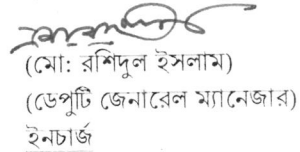 (মো: রশিদুল ইসলাম)
(ডেপুটি জেনারেল ম্যানেজার)
ইনচার্জ